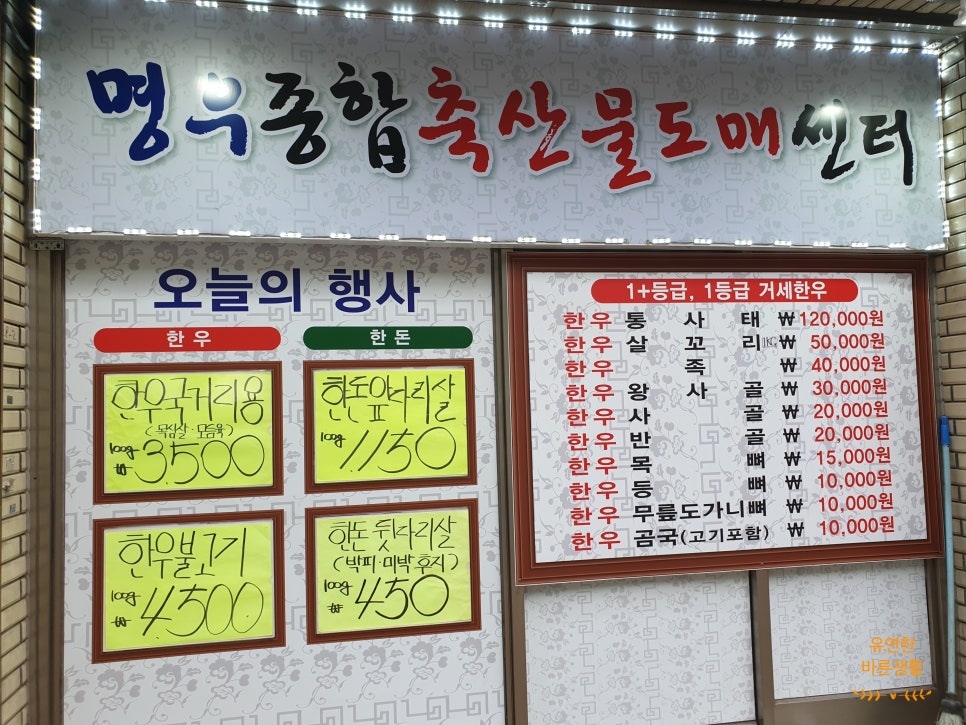 명우종합축산물도매센터
오늘의 행사
한우
한돈
한우국거리용
(목심살·모듬육)
100g
₩3,500
한돈앞다리살
100g
1,150
한우불고기
100g
₩4,500
한돈 뒷다리살
(박피·미박후지)
100g
₩450
1+등급, 1등급 거세한우
한우 통 사 태 ₩120,000원
한우 살 꼬 리 1KG ₩ 50,000원
한우 족 ₩ 40,000원
한우 왕 사 골 ₩ 30,000원
한우 사 골 ₩ 20,000원
한우 반 골 ₩ 20,000원
한우 목 뼈 ₩ 15,000원
한우 등 뼈 ₩ 10,000원
한우 무릎도가니뼈 ₩ 10,000원
한우 곰국(고기포함) ₩ 10,000원
유연한
바른생활